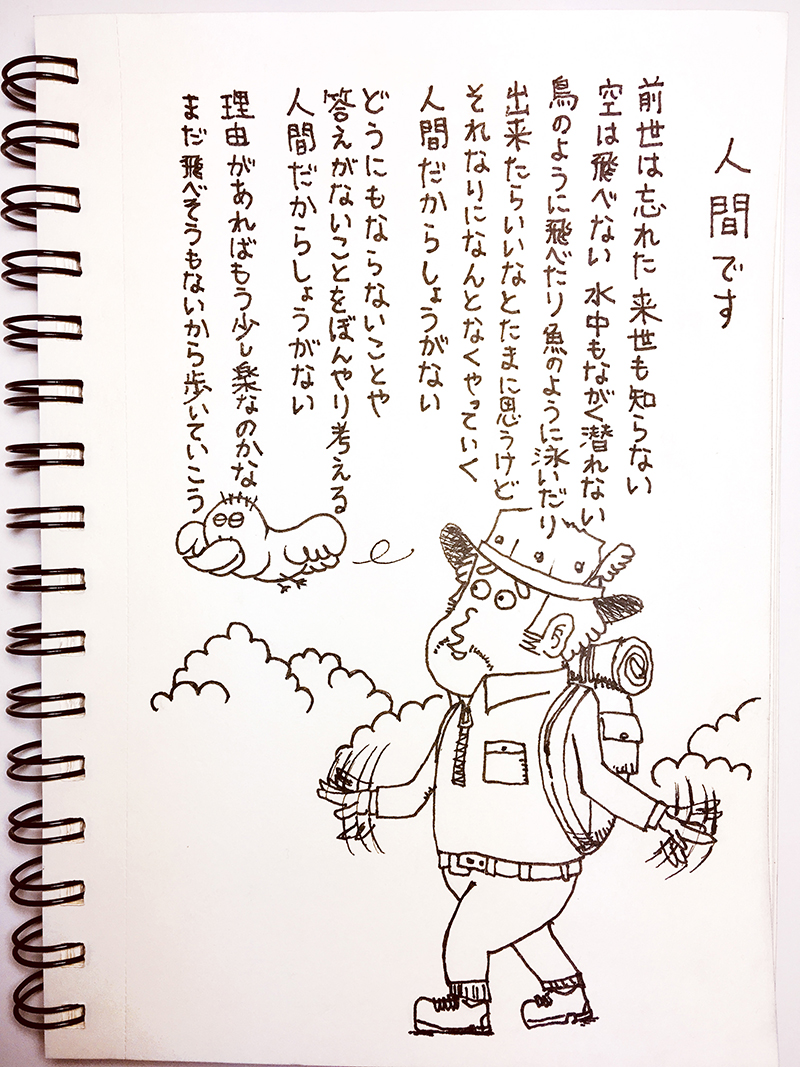 人間です
前世は忘れた 来世も知らない
空は飛べない 水中もながく潜れない
鳥のように飛べたり 魚のように泳いだり
出来たらいいなとたまに思うけど
それなりになんとなくやっていく
人間だからしょうがない
どうにもならないことや
答えがないことをぼんやり考える
人間だからしょうがない
理由があればもう少し楽なのかな
まだ飛べそうもないから歩いていこう